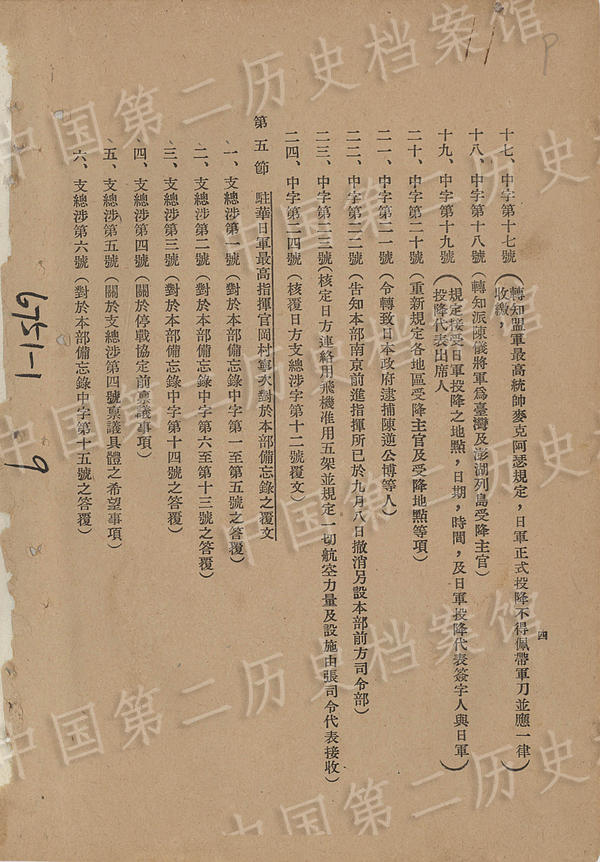 四
十七、中字第十七號（轉知盟軍最高統帥麥克阿瑟規定，日軍正式投降不得佩帶軍刀並應一律
收繳，）
十八、中字第十八號（轉知派陳儀將軍為臺灣及澎湖列島受降主官）
十九、中字第十九號（規定接受日軍投降之地點，日期，時間，及日軍投降代表簽字人與日軍
投降代表出席人）
二十、中字第二十號（重新規定各地區受降主官及受降地點等項）
二一、中字第二一號（令轉致日本政府逮捕陳逆公博等人）
二二、中字第二二號（告知本部南京前進指揮所已於九月八日撤消另設本部前方司令部）
二三、中字第二三號（核定日方連絡用飛機准用五架並規定一切航空力量及設施由張司令代表接收）
二四、中字第二四號（核覆日方支總涉字第十二號覆文）
第五節　駐華日軍最高指揮官岡村寧次對於本部備忘錄之覆文
一、支總涉第一號（對於本部備忘錄中字第一至第五號之答覆）
二、支總涉第二號（對於本部備忘錄中字第六至第十三號之答覆）
三、支總涉第三號（對於本部備忘錄中字第十四號之答覆）
四、支總涉第四號（關於停戰協定前禀議事項）
五、支總涉第五號（關於支總涉第四號禀議具體之希望事項）
六、支總涉第六號（對於本部備忘錄中字第十五號之答覆）
6751-1
9
11
P
中国第二历史档案馆
中国第二历史档案馆
中国第二历史档案馆
中国第二历史档案馆
中国第二历史档案馆